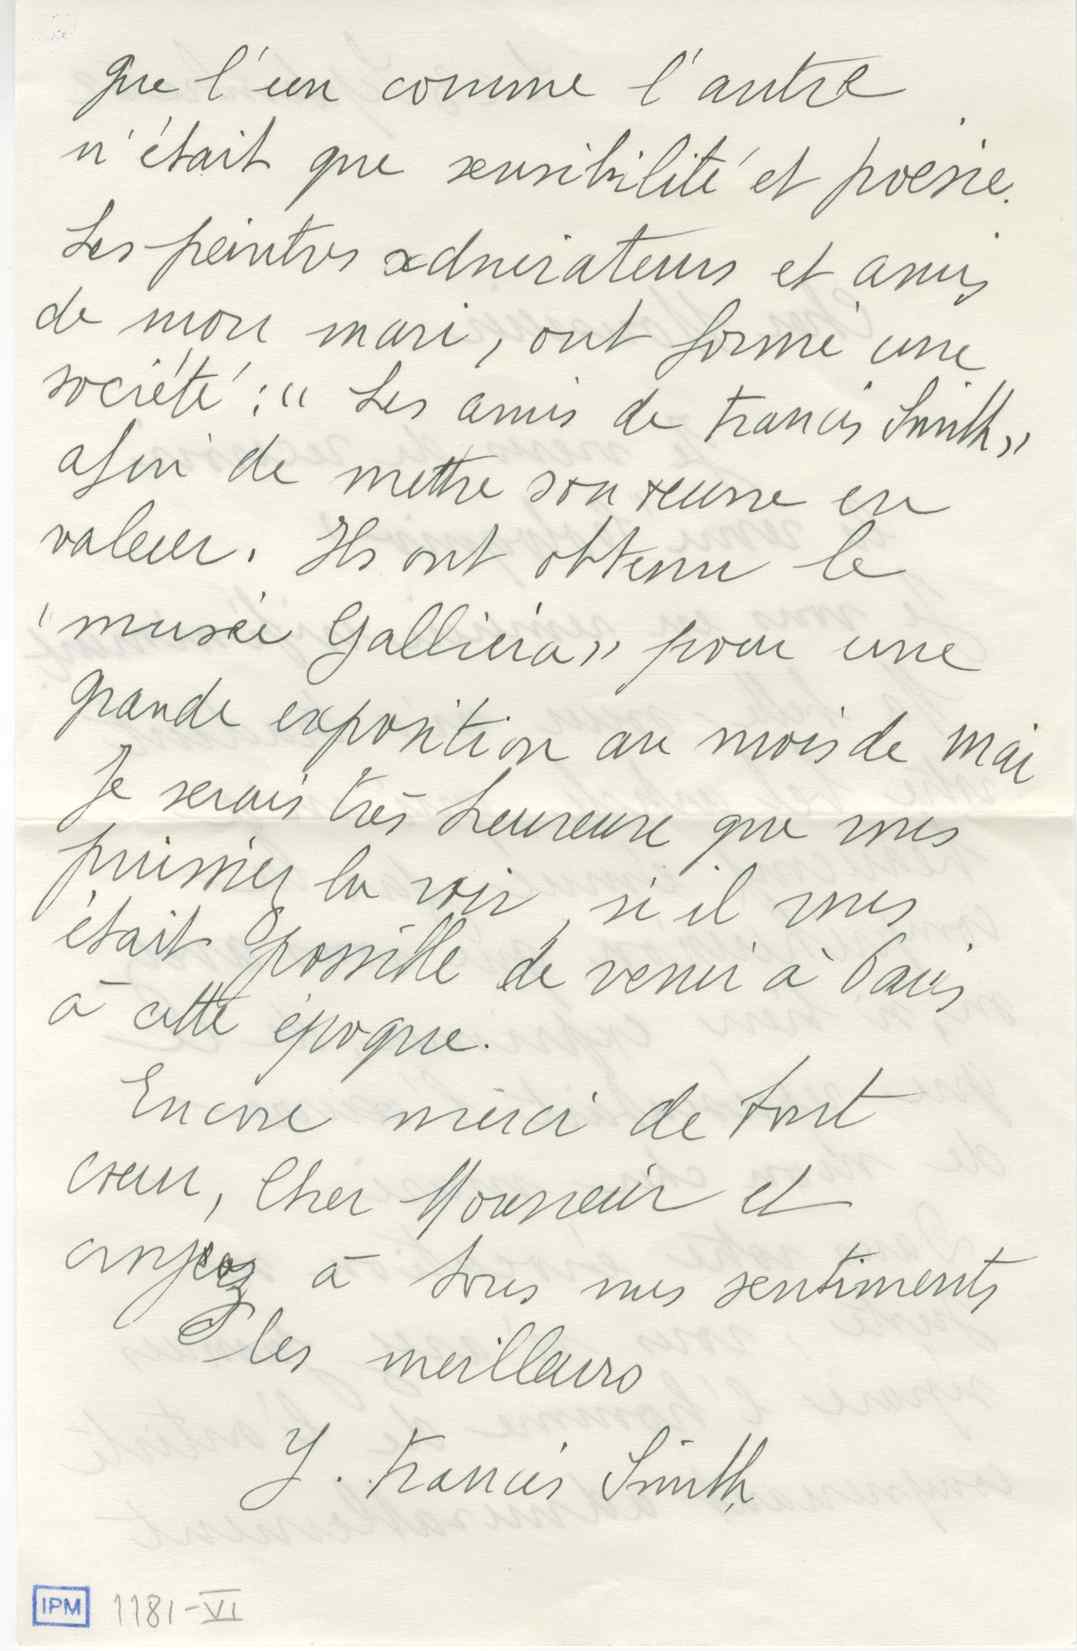 que l'un comme l'autre
n'était que sensibilité et poésie.
Les peintres admirateurs et amis
de mon mari, ont formé une
société : " Les amis de Francis Smith "
afin de mettre son œuvre en
valeur. Ils ont obtenu le
" musée Galliéra " pour une
grande exposition au mois de mai
Je serais très heureuse que vous
puissiez la voir, si il vous
était possible de venir à Paris
à cette époque.
Encore merci de tout
cœur, Cher Monsieur et
croyez à tous mes sentiments
les meilleurs
Y. Francis Smith
IPM 1181-VI